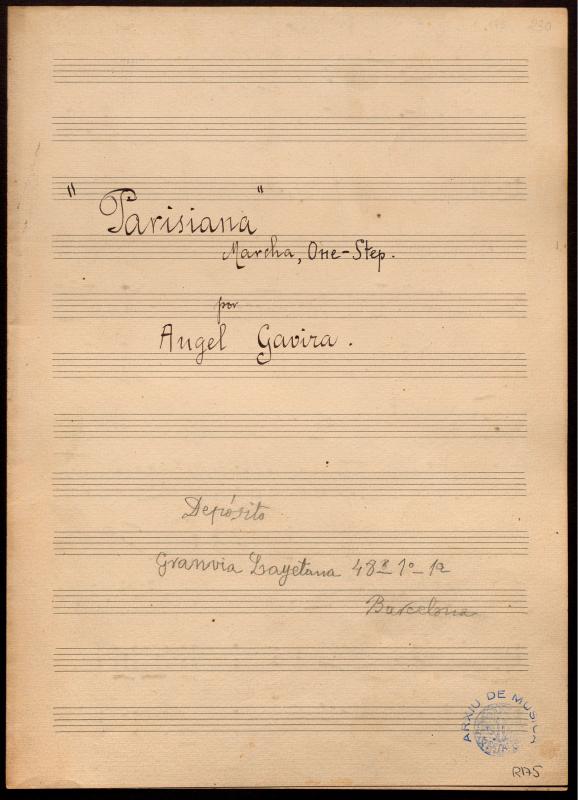 230
"Parisiana"
Marcha, One-Step.
por
Angel Gavira.
Depósito
Granvia Layetana 48 1º-1ª
Barcelona
ARXIU DE MUSICA
R175